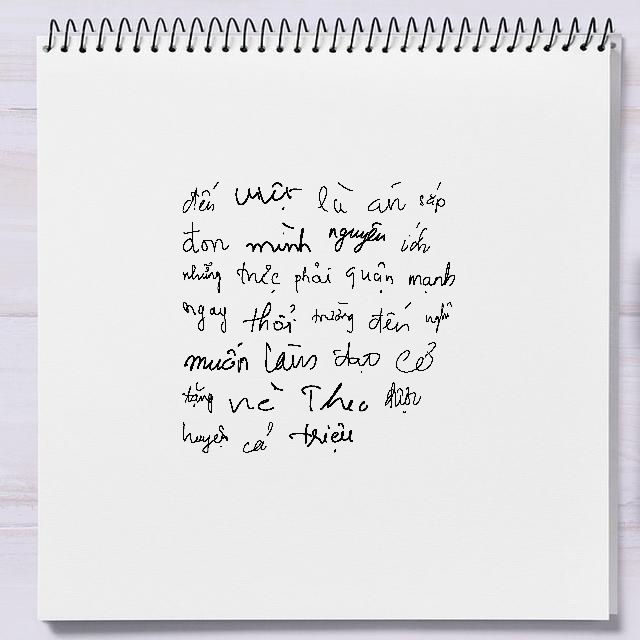 đến một là án sáp
đơn mình nguyên ích
những trúc phải quận mạnh
ngay thổi trường đến nghĩ
muốn làm đạo cở
tặng về Theo được
huyện cả triệu